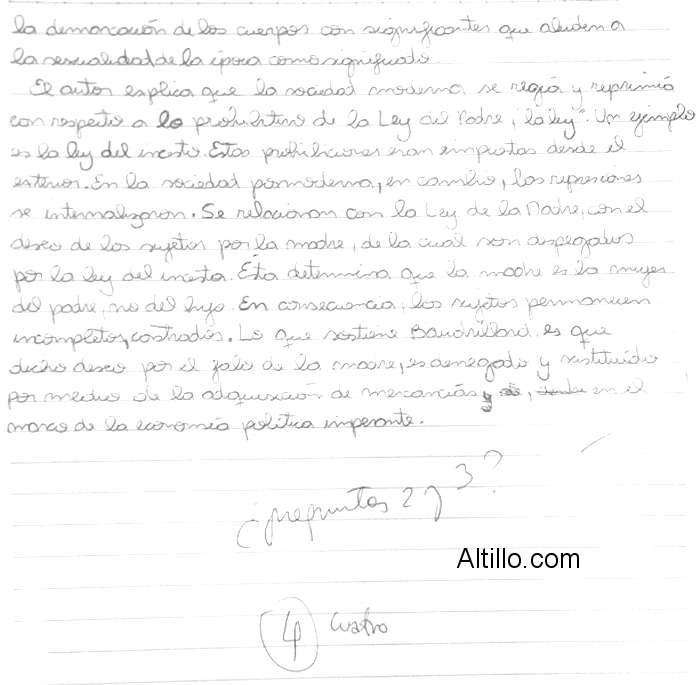 la demarcación de los cuerpos con significantes que aluden a
la sexualidad de la época como significado.
El autor explica que la sociedad moderna se regía y reprimía
con respecto a lo prohibitivo de la Ley del Padre, "la ley". Un ejemplo
es la ley del incesto. Estas prohibiciones eran impuestas desde el
exterior. En la sociedad posmoderna, en cambio, las represiones
se internalizaron. Se relacionan con la Ley de la Madre, con el
deseo de los sujetos por la madre, de la cual son despegados
por la ley del incesto. Ésta determina que la madre es la mujer
del padre, no del hijo. En consecuencia, los sujetos permanecen
incompletos, castrados. Lo que sostiene Baudrillard es que
dicho deseo por el falo de la madre, es denegado y sustituido
por medio de la adquisición de mercancías y , en el
marco de la economía política imperante.
¿preguntas 2 y 3?
Altillo.com
4 cuatro